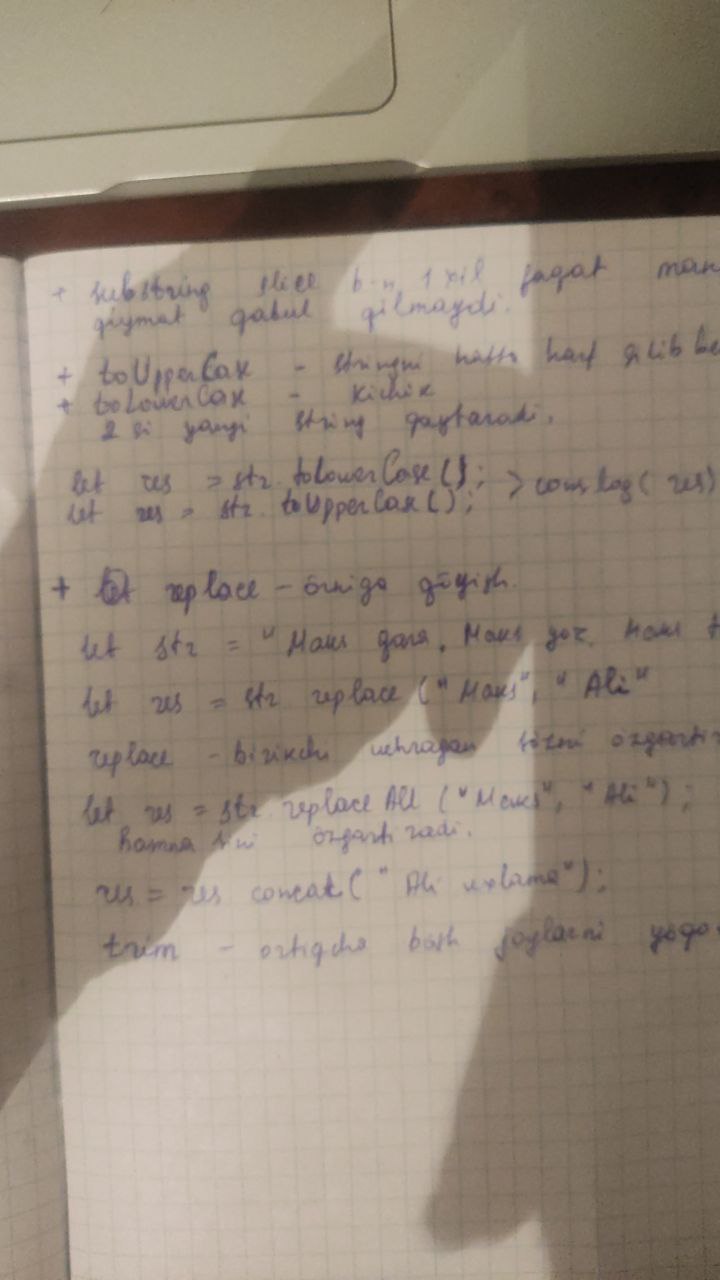 + substring slice b-n 1 xil faqat man
qiymat qabul qilmaydi.
+ toUpperCase - stringni katta harf qilib be
+ toLowerCase - kichik
2 si yangi string qaytaradi.
let res = str. toLowerCase(); > cons.log( res)
let res = str. toUpperCase();
+ replace - o̅rniga qo̅yish.
let str = "Maks qara, Maks yoz, Maks
let res = str replace ("Maks", "Ali"
replace - birinchi uchragan so̅zni o̅zgartir
let res = str. replace All ("Maks", "Ali");
hamma sini o̅zgarti radi.
res = res concat( " Ali uxlama");
trim - ortiqcha bosh joylarni yo̅qo